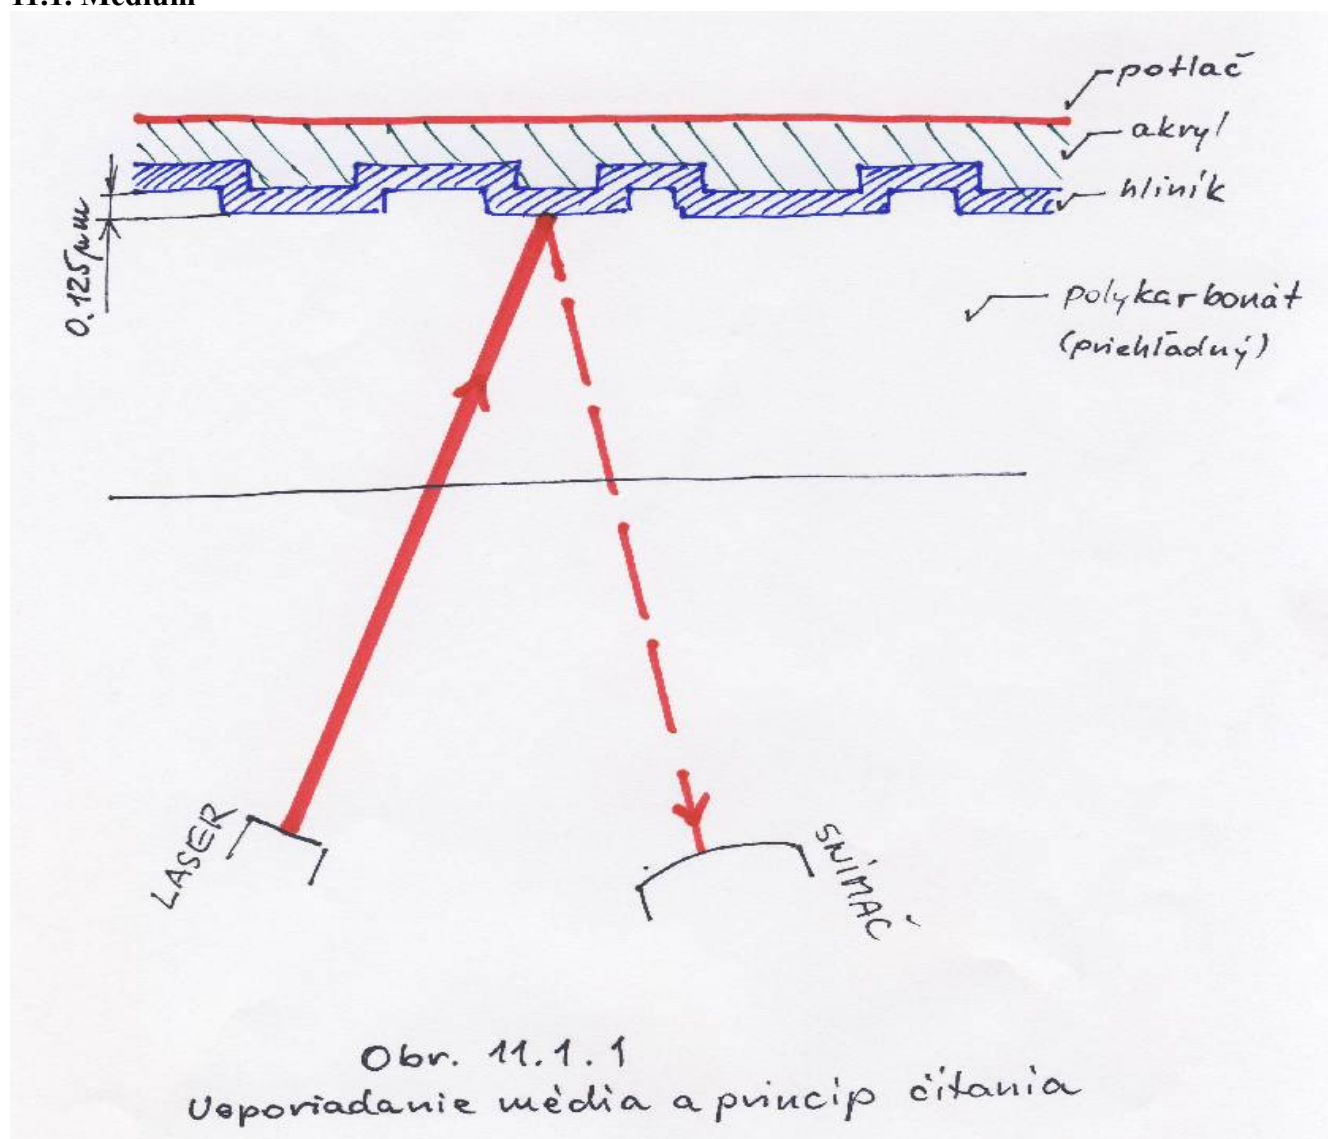 11.1. Médium
potlač
akryl
hliník
0.125μm
polykarbonát
(priehľadný)
LASER
SNÍMAČ
Obr. 11.1.1
Usporiadanie média a princíp čítania